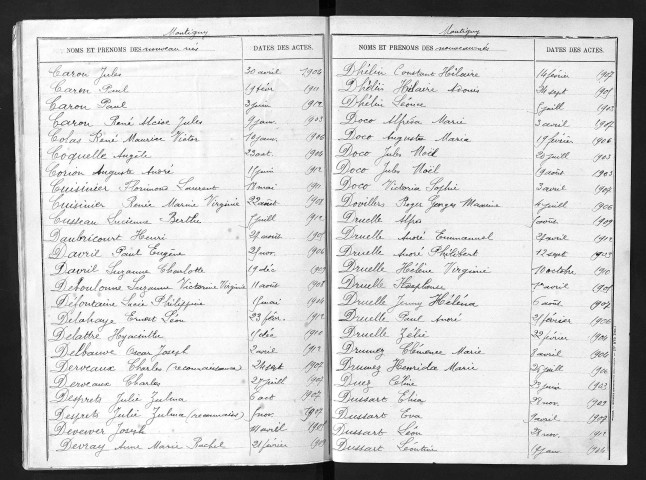 Montigny
NOMS ET PRENOMS DES nouveau nés DATES DES ACTES.
Caron Jules 30 avril 1906
Caron Paul 19 févr 1911
Caron Paul 3 juin 1912
Caron René Alcise Jules 9 janv 1903
Colas René Maurice Victor 10 janv. 1906
Coquelle Angèle 23 oct. 1906
Corion Auguste André 11 juin 1912
Cuisinier Florimond Laurent 11 mai 1911
Cuisinier Renée Marie Virginie 22 août 1908
Cusseau Lucienne Berthe 7 juill 1912
Daubricourt Henri 28 avril
Davril Paul Eugène 21 nov. 1906
Davril Suzanne Charlotte 19 déc
Deboulonne Suzanne Victorine Virginie 11 août 1908
Défontaine Lucie Philippine 1 janvi 1904
Delahaye Ernest Léon 23 févr. 1912
Delattre Hyacinthe 1 déc 1910
Delbauve Oscar Joseph 2 avril 1912
Derveaux Charles (reconnaissance) 24 sept 1907
Derveaux Charles 27 juill 1907
Desprets Julie Zulma 6 oct 1907
Desprets Julie Zulma (reconnaiss) 1 nov. 1907
Devewer Joseph 11 avril 1908
Devray Anne Marie Rachel 21 février
Montigny
NOMS ET PRENOMS DES nouveau nés DATES DES ACTES.
Dhélin Constant Hilaire 14 février 1907
Dhélin Hilaire Adonis 24 sept 1908
Dhélin Léonce 8 juill 1903
Doco Alfréda Marie 3 avril 1907
Doco Augusta Maria 19 février 1906
Doco Jules Noël 20 juill 1903
Doco Jules Noël 19 août 1903
Doco Victoria Sophie 3 avril 1904
Dovillers Roger Georges Maurice 4 juill 1906
Druelle Alfred 1909
Druelle André Emmanuel 27 avril 1912
Druelle André Philibert 12 sept
Druelle Hélène Virginie 10 octobre 1910
Druelle 1er avril 1908
Druelle Jenny Héléna 6 août 1907
Druelle Paul André 21 février 1906
Druelle Zélie 22 février 1904
Drumez Clémence Marie 5 avril 1904
Drumez Henriette Marie 26 juill 1906
Duez Céline 23 juin 1903
Dussart Elisa 29 nov. 1903
Dussart Eva 1 avril 1909
Dussart Léon 28 nov. 1911
Dussart Léontine 19 janv. 1906